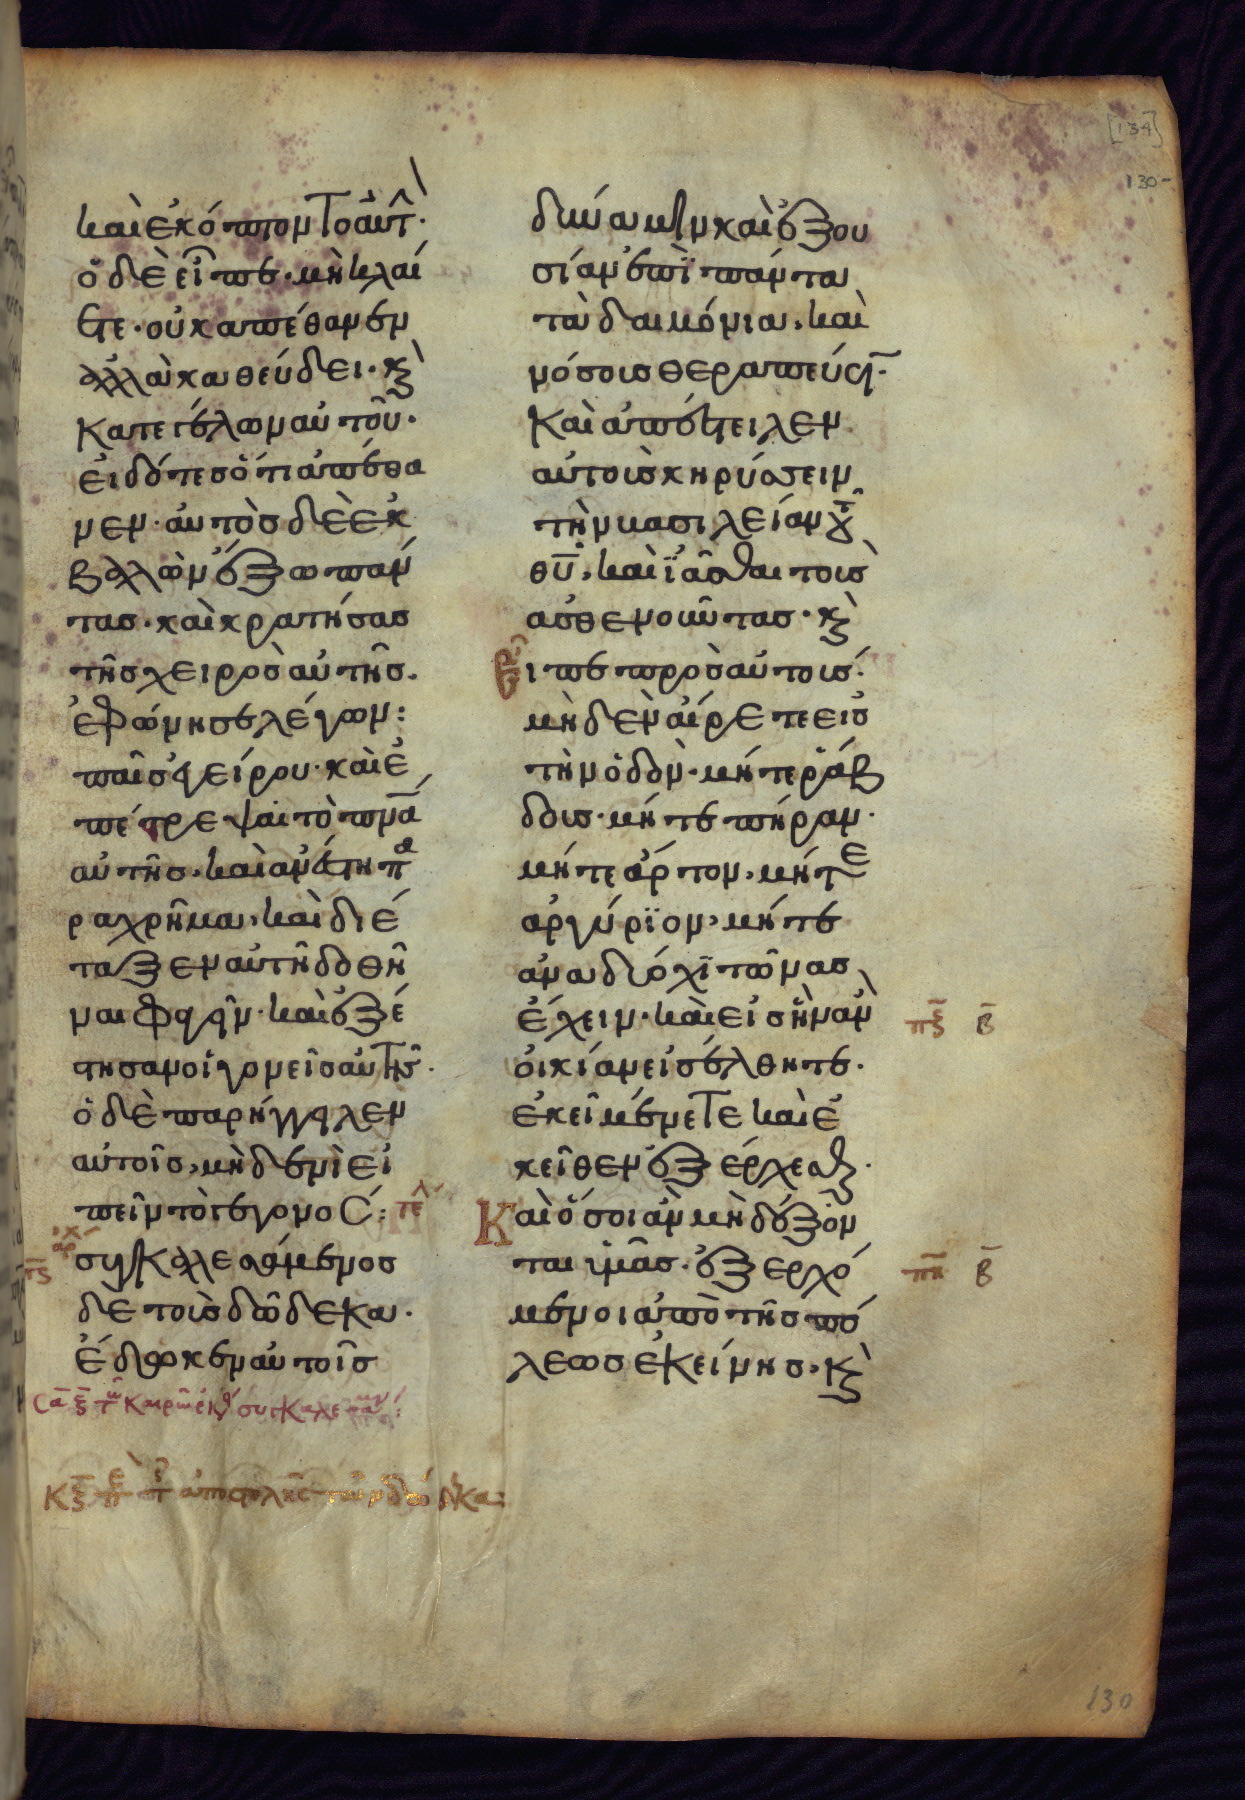 [134]
130-
καὶ ἐκόπτοντο αὐτ̑·
ὁ δὲ εἶπε· μὴ κλαί
ετε· οὐκ ἀπέθανεν
ἀλλὰ καθεύδει· κ̀
κατεγέλων αὐτοῦ·
εἰδότες ὅτι ἀπέθα
νεν· αὐτὸς δὲ ἐκ
βαλὼν ἔξω πάν
τας· καὶ κρατήσας
τῆς χειρὸς αὐτῆς·
ἐφώνησε λέγων:
παῖς ἐγείρου· καὶ ἐ
πέτρεψαι τὸ πν̅α
αὐτῆς· καὶ ἀνέστη πα
ραχρῆμα, καὶ διέ
ταξεν αὐτῇ δοθῆ
ναι φαγεῖν· καὶ ἐξέ
στησαν οἱ γονεῖς αὐτῆς·
ὁ δὲ παρήγγειλεν
αὐτοῖς, μηδενὶ εἰ
πεῖν τὸ γεγονός: τελ
αρχ
πς̅ συγκαλεσάμενος
δὲ τοὺς δώδεκα·
ἔδωκεν αὐτοῖς
δύναμιν καὶ ἐξου
σίαν ἐπὶ πάντα
τὰ δαιμόνια, καὶ
νόσους θεραπεύειν̅·
Καὶ ἀπέστειλεν
αὐτοὺς κηρύσσειν
τὴν βασιλείαν τ̑
θυ̅, καὶ ἰᾶσθαι τοὺς
ἀσθενοῦντας· κ̀
Εἶπε πρὸς αὐτούς·
μηδὲν αἴρετε εἰς
τὴν ὁδόν· μήτε ῥάβ
δους· μήτε πήραν·
μήτε ἄρτον, μήτε
ἀργύριον, μήτε
ἀνὰ δύο χιτῶνας
ἔχειν· καὶ εἰς ἣν ἂν πζ̅ β̅
οἰκίαν εἰσέλθητε·
ἐκεῖ μένετε καὶ ἐ
κεῖθεν ἐξέρχεσθε·
Καὶ ὅσοι ἂν μὴ δέξων
ται ὑμᾶς· ἐξερχό πη̅ β̅
μενοι ἀπὸ τῆς πό
λεως ἐκείνης· κ̀
130